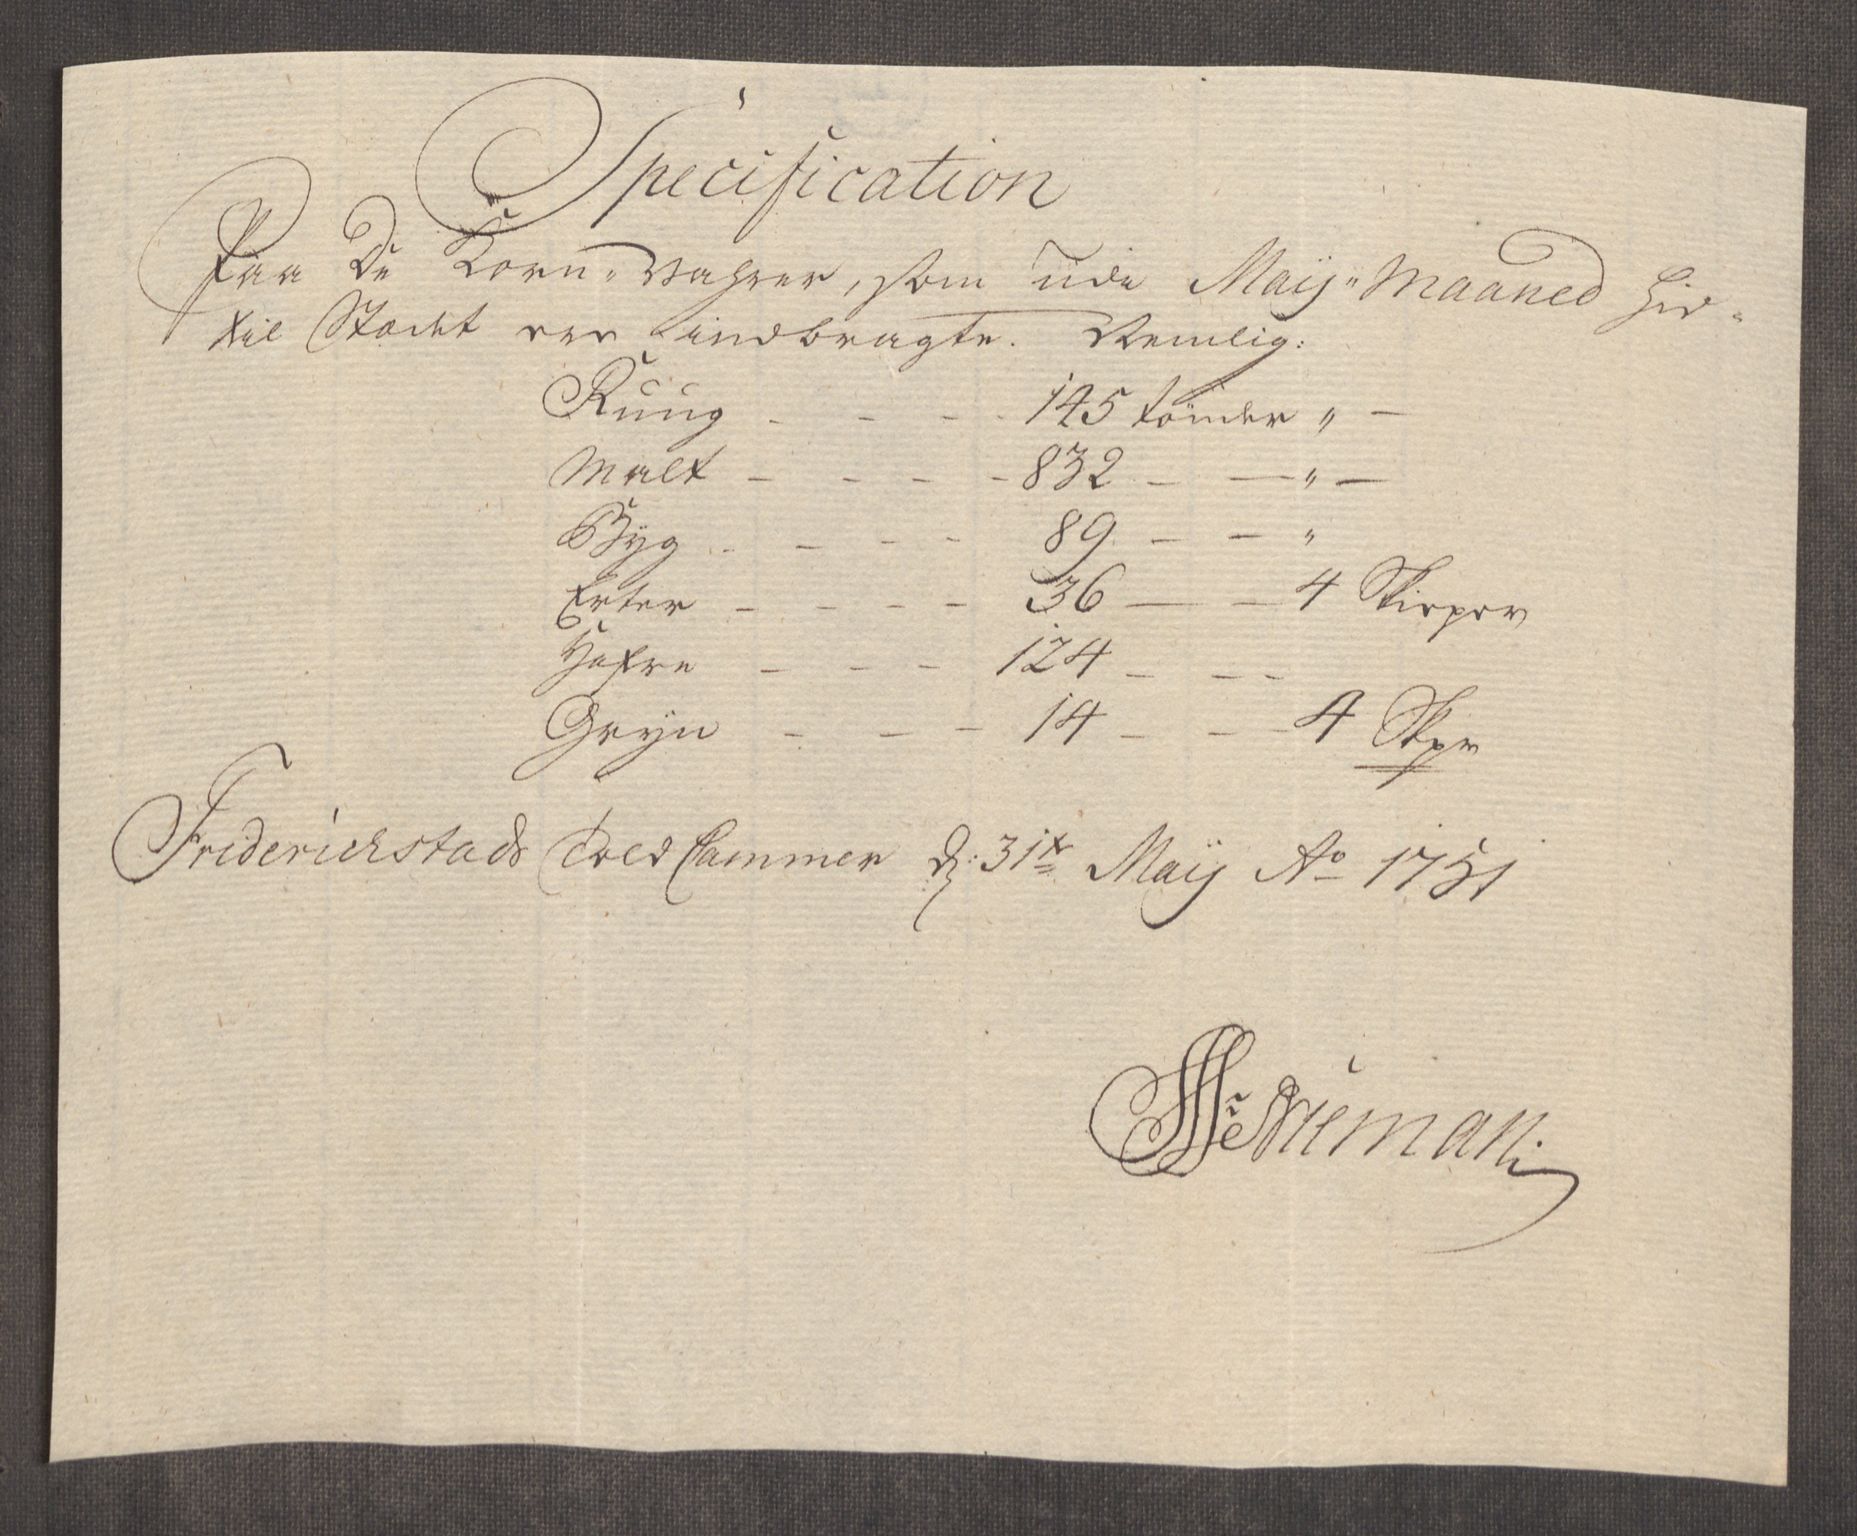 Specification
Paa De Korn-Vahrer, som udi Maÿ-Maaned hid-
til Stædet ere indbragte. Nemlig:
Ruug - - - - 145 tönder " -
Malt - - - - 832 - - " -
Byg - - - - 89 - - "
Erter - - - - 36 - - 4 Skiepper
Hafre - - - 124 - - -
Gryn - - - 14 - - - 4 Skpr
Friderichstads Told Cammer d: 31te Maÿ Ao 1751